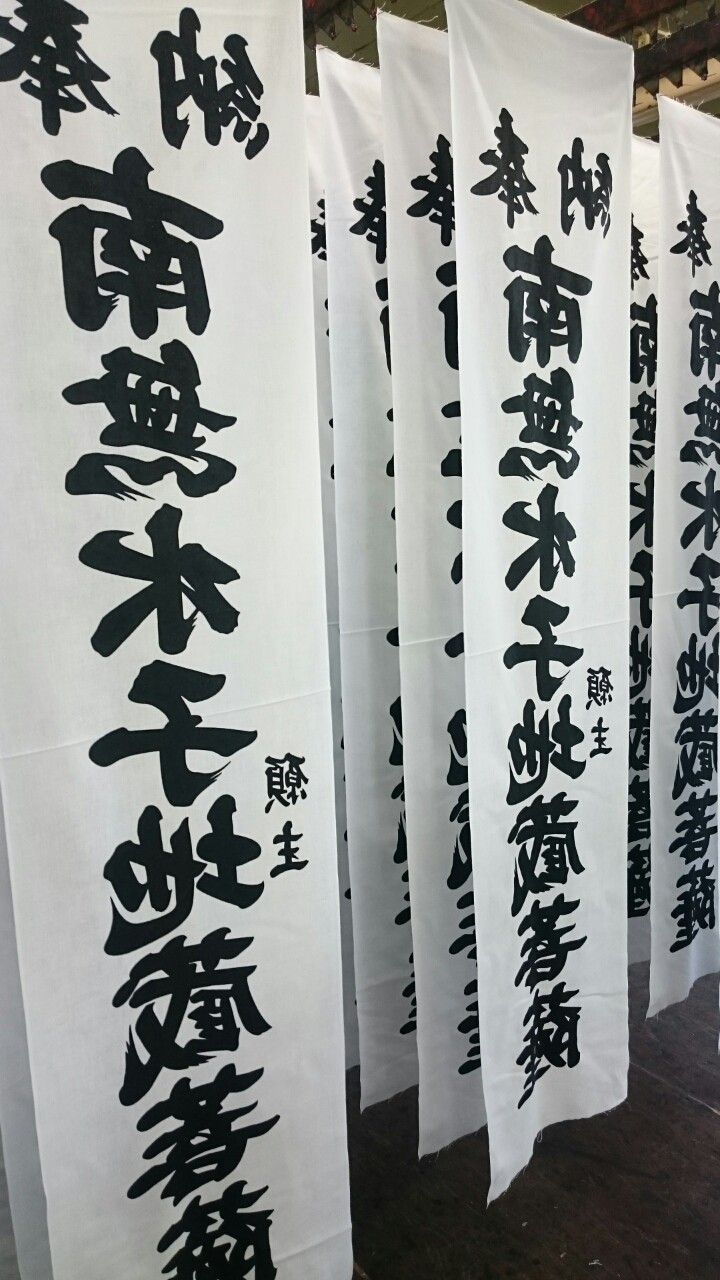 奉納
南無水子地蔵菩薩
願主
奉
奉
奉納
南無水子地蔵菩薩
願主
奉
南無水子地蔵菩薩
奉
南無水子地蔵菩薩